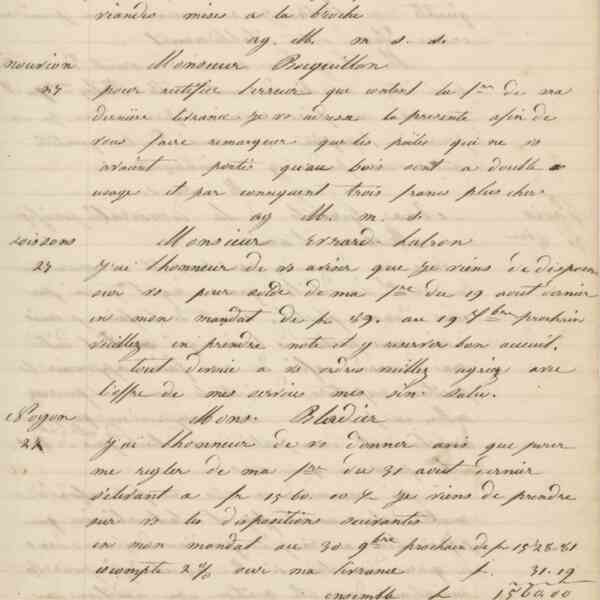 viandes mises a la broche
ag. M. m. s. s.
nouvion Monsieur Boquillon
27 pour rectifier l'erreur que contient la fre de ma
dernière livrance je vs adresse la presente afin de
vous faire remarquer que les poëles qui ne vs
avaient portés qu'au bois sont a double
usage et par consequent trois francs plus cher.
ag M. m. s.
soissons Monsieur Evrard
27 J'ai l'honneur de vs aviser que je viens de disposer
sur vs pour solde de ma fre du 19 aout dernier
en mon mandat de fr 89. au 19 7bre prochain
veuillez en prendre note et y reserver bon accueil.
tout devoué a vs ordres veuillez agréer avec
l'offre de mes services mes sin. salu.
Noyon Mons. Bladier
27 J'ai l'honneur de vs donner avis que pour
me regler de ma fre du 31 aout dernier
s'élevant a fr 1560. 00 je viens de prendre
sur vs les dispositions suivantes
en mon mandat au 30 9bre prochain de fr 1528.81
escompte 2 % sur ma livrance f. 31.19
ensemble f 1560.00